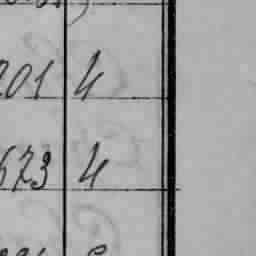 201 4
673 4